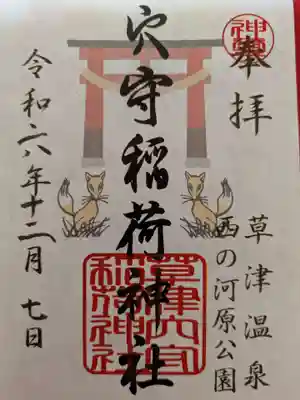 奉拝
草津温泉
西の河原公園
穴守稲荷神社
令和六年十二月七日
草津
稲荷神社